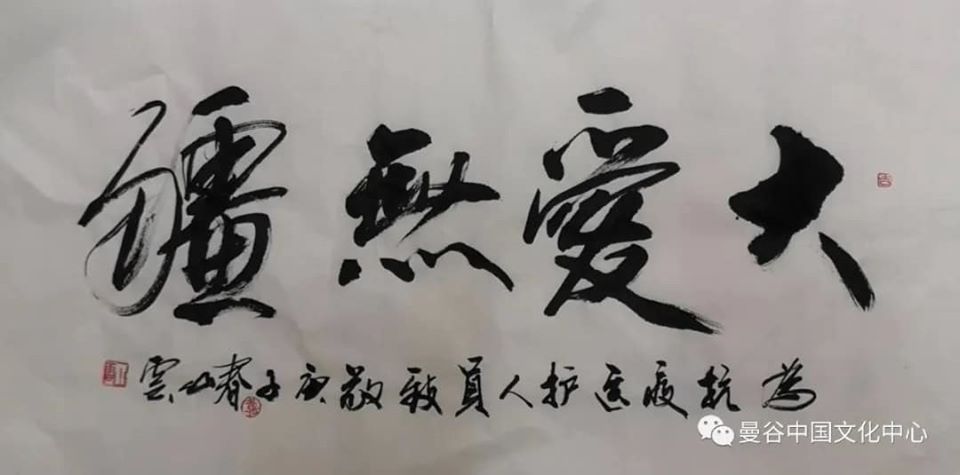 大愛無疆
為抗疫医护人員致敬庚子春山雲
曼谷中国文化中心